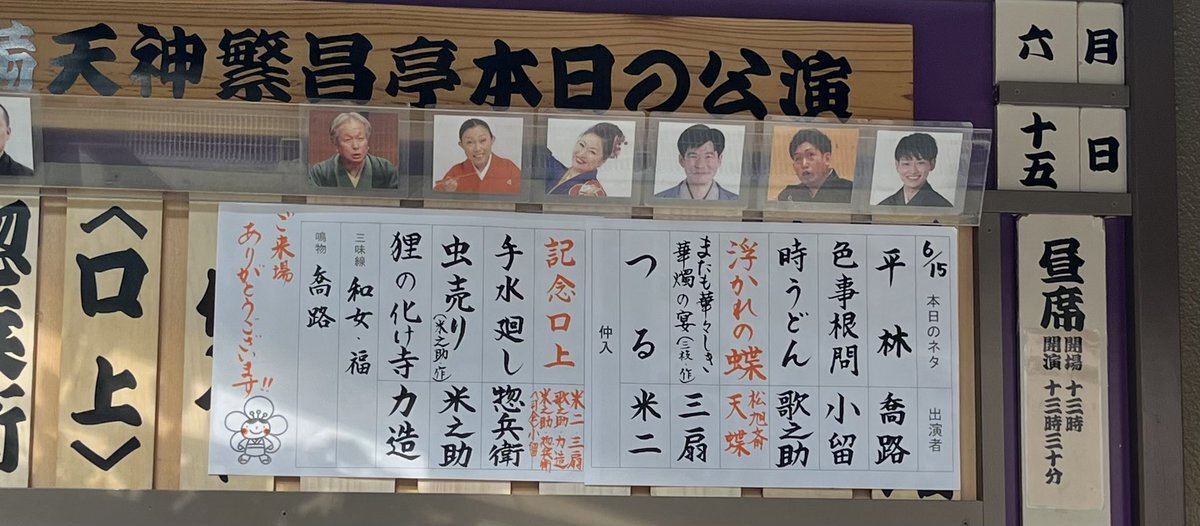 天神繁昌亭本日の公演
六月
十五日
昼席
開場 十三時
開演 十三時三十分
6/15 本日のネタ 出演者
平林 喬路
色事根問 小留
時うどん 歌之助
浮かれの蝶 松旭斎 天蝶
またも華々しき
華燭の宴(三枝 作) 三扇
つる 米二
仲入
記念口上 米二 三扇
歌之助 力造
米之助 惣兵衛
小留
手水廻し 惣兵衛
虫売り(米之助 作) 米之助
狸の化け寺 力造
三味線 和女・福
鳴物 喬路
ご来場
ありがとうございます!!
〈口上〉
惣兵衛